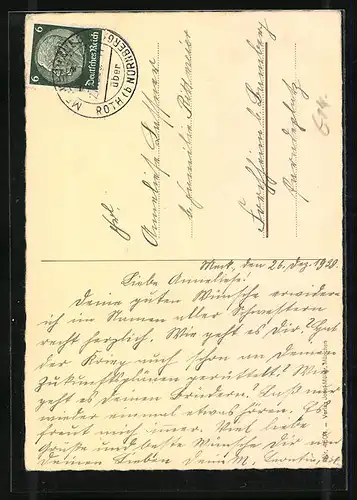 6 Deutsches Reich 6
über
ROTH (b NÜRNBERG)
Frl.
Anneliese
b. Familie Rittmeier
Forchheim b. Bamberg
Paradeplatz
den 26. Dez. 1939.
Liebe Anneliese!
Deine guten Wünsche erwidere
ich im Namen aller Schwestern
recht herzlich. Wie geht es Dir? Hat
der Krieg auch schon an Deinen
Zukunftsplänen gerüttelt? Wie
geht es Deinen Brüdern? Laß mal
wieder einmal etwas hören. Es
freut mich immer. Viel liebe
Grüße und beste Wünsche Dir und
Deinen Lieben Deine M.